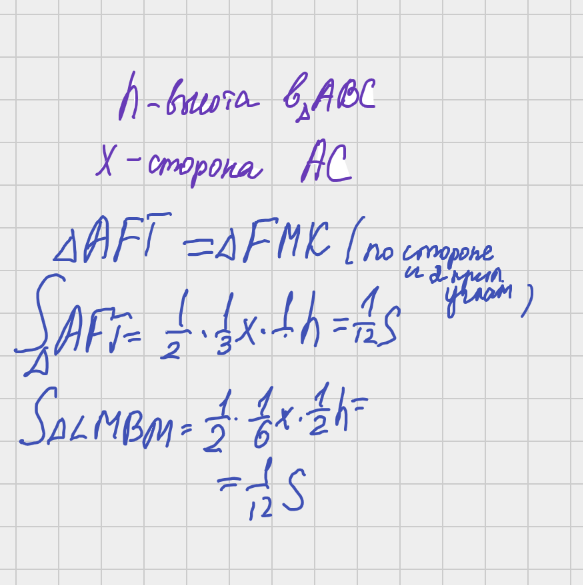 h - высота в △ABC
x - сторона AC
△AFT = △FMK (по стороне
и 2 прил.
углам)
S△AFT = 1/2 · 1/3 x · 1/ h = 1/12 S
S△LMBM = 1/2 · 1/6 x · 1/2 h =
= 1/12 S